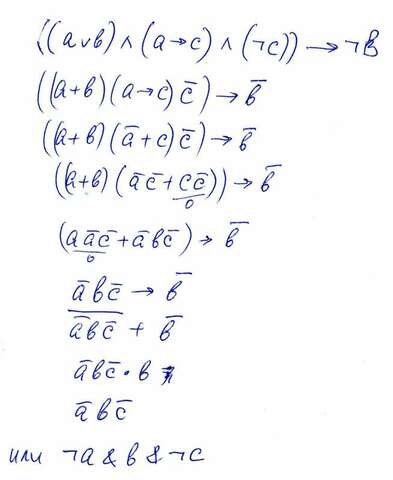 ((a∨b) ∧ (a→c) ∧ (¬c)) → ¬B
((a+b)(a→c)c̅) → b̅
((a+b)(a̅+c)c̅) → b̅
((a+b)(a̅c̅+cc̅)) → b̅
0
(aa̅c̅+a̅bc̅) → b̅
0
a̅bc̅ → b̅
a̅bc̅ + b̅
a̅bc̅·b
a̅bc̅
или ¬a & b & ¬c